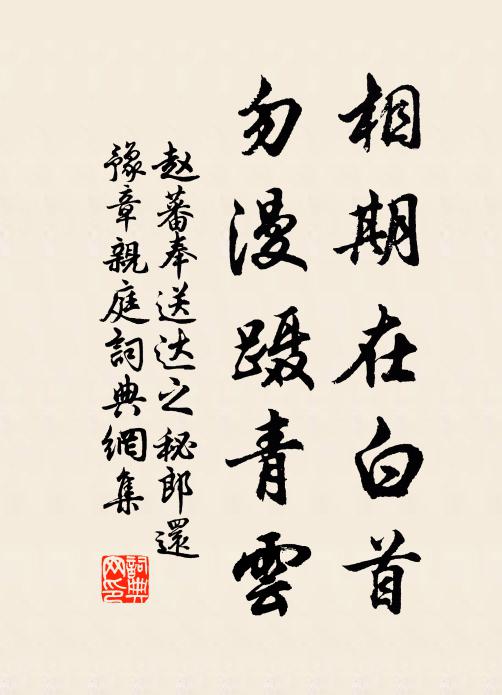 相期在白首
勿漫蹑青雲
赵蕃奉送达之秘郎還
豫章親庭詞典網集
詞典网印